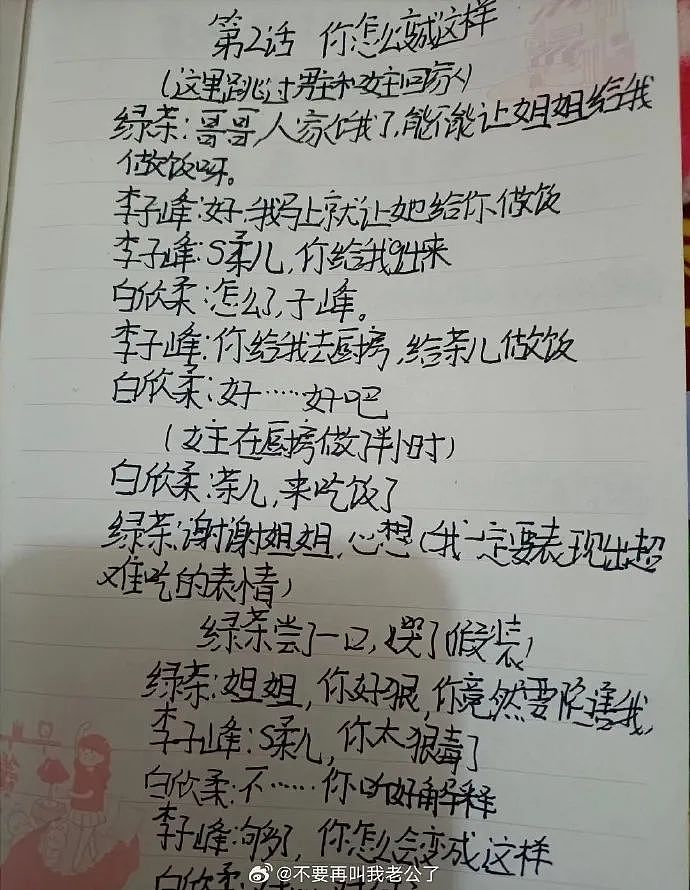 第2话 你怎么变成这样
(这里跳过男主和女主回家)
绿茶:哥哥,人家饿了,能不能让姐姐给我
做饭呀。
李子峰:好,我马上就让她给你做饭
李子峰:S柔儿,你给我出来
白欣柔:怎么了,子峰。
李子峰:你给我去厨房,给茶儿做饭
白欣柔:好……好吧
(女主在厨房做了半小时)
白欣柔:茶儿,来吃饭了
绿茶:谢谢姐姐,心想(我一定要表现出超
难吃的表情)
绿茶尝了一口,哭了(假装)
绿茶:姐姐,你好狠,你竟然要陷害我,
李子峰:S柔儿,你太狠毒了
白欣柔:不……你听好解释
李子峰:够了,你怎么会变成这样
白欣柔:
@不要再叫我老公了